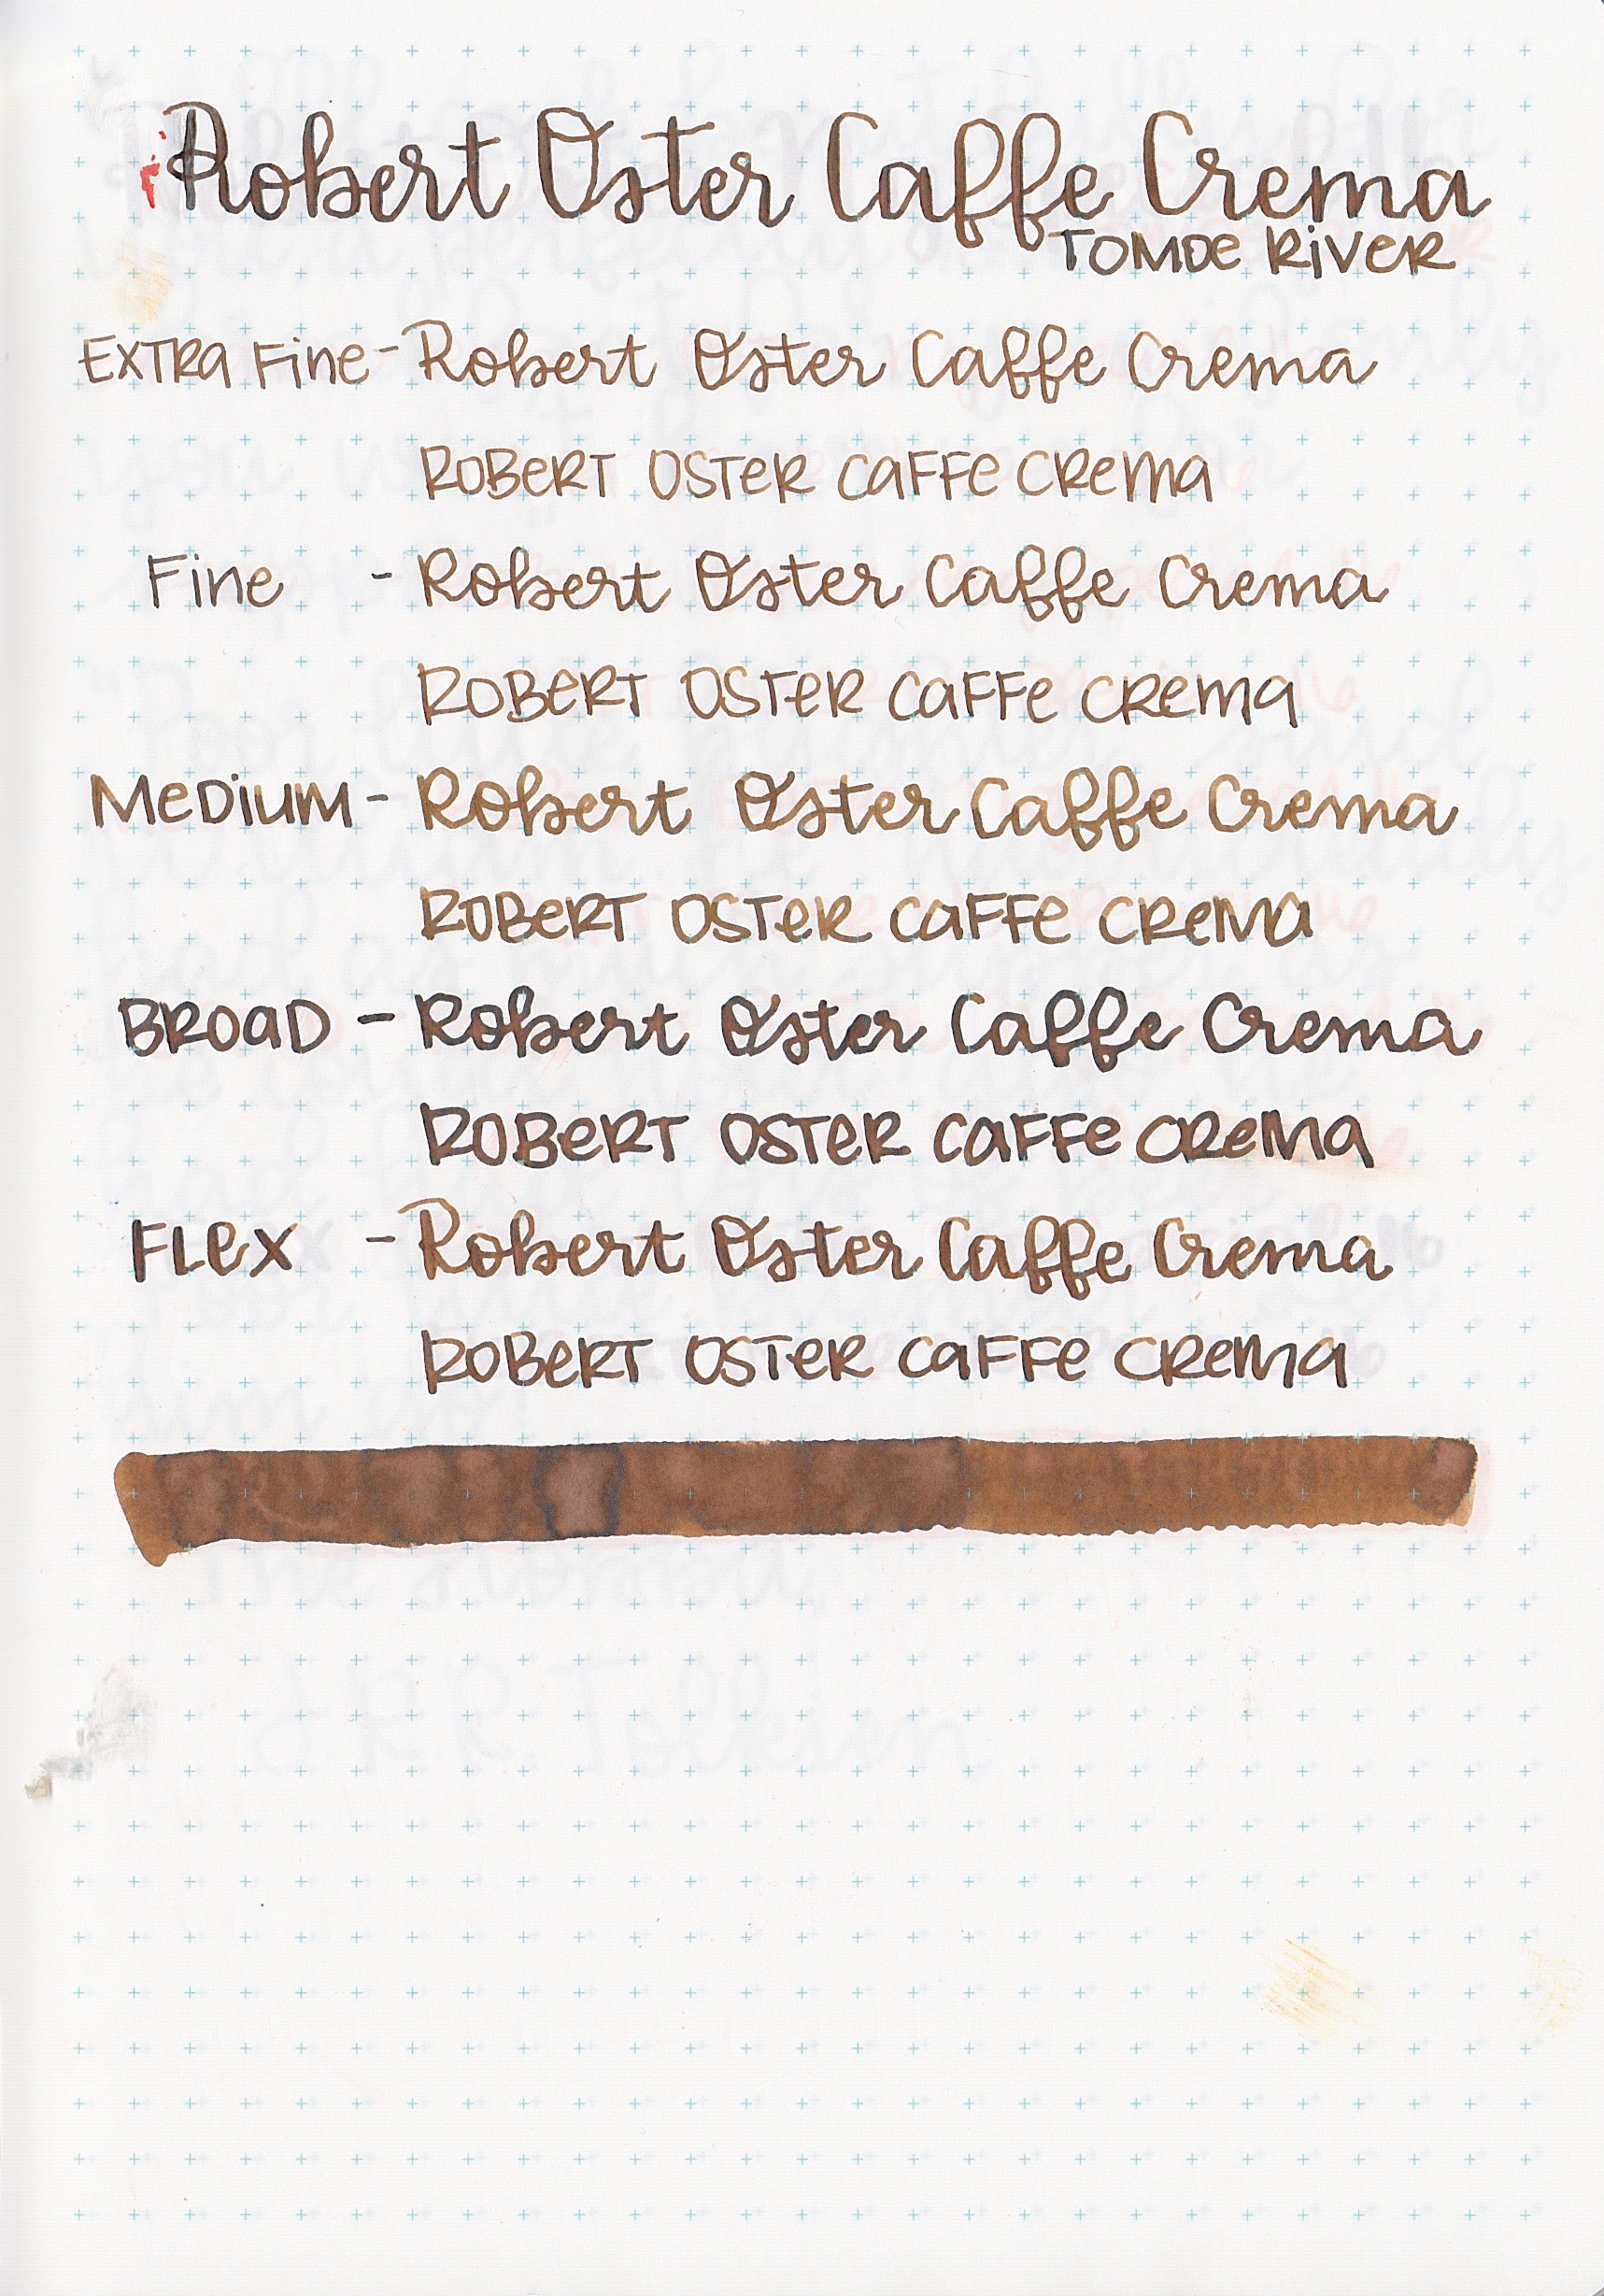 Robert Oster Caffe Crema
TOMOE RiVER
EXTRA Fine - Robert Oster Caffe Crema
ROBERT OSTER CAFFE CREMA
Fine - Robert Oster Caffe Crema
ROBERT OSTER CAFFE CREMA
MEDiUM - Robert Oster Caffe Crema
ROBERT OSTER CAFFE CREMA
BROAD - Robert Oster Caffe Crema
ROBERT OSTER CAFFE CREMA
FLEX - Robert Oster Caffe Crema
ROBERT OSTER CAFFE CREMA